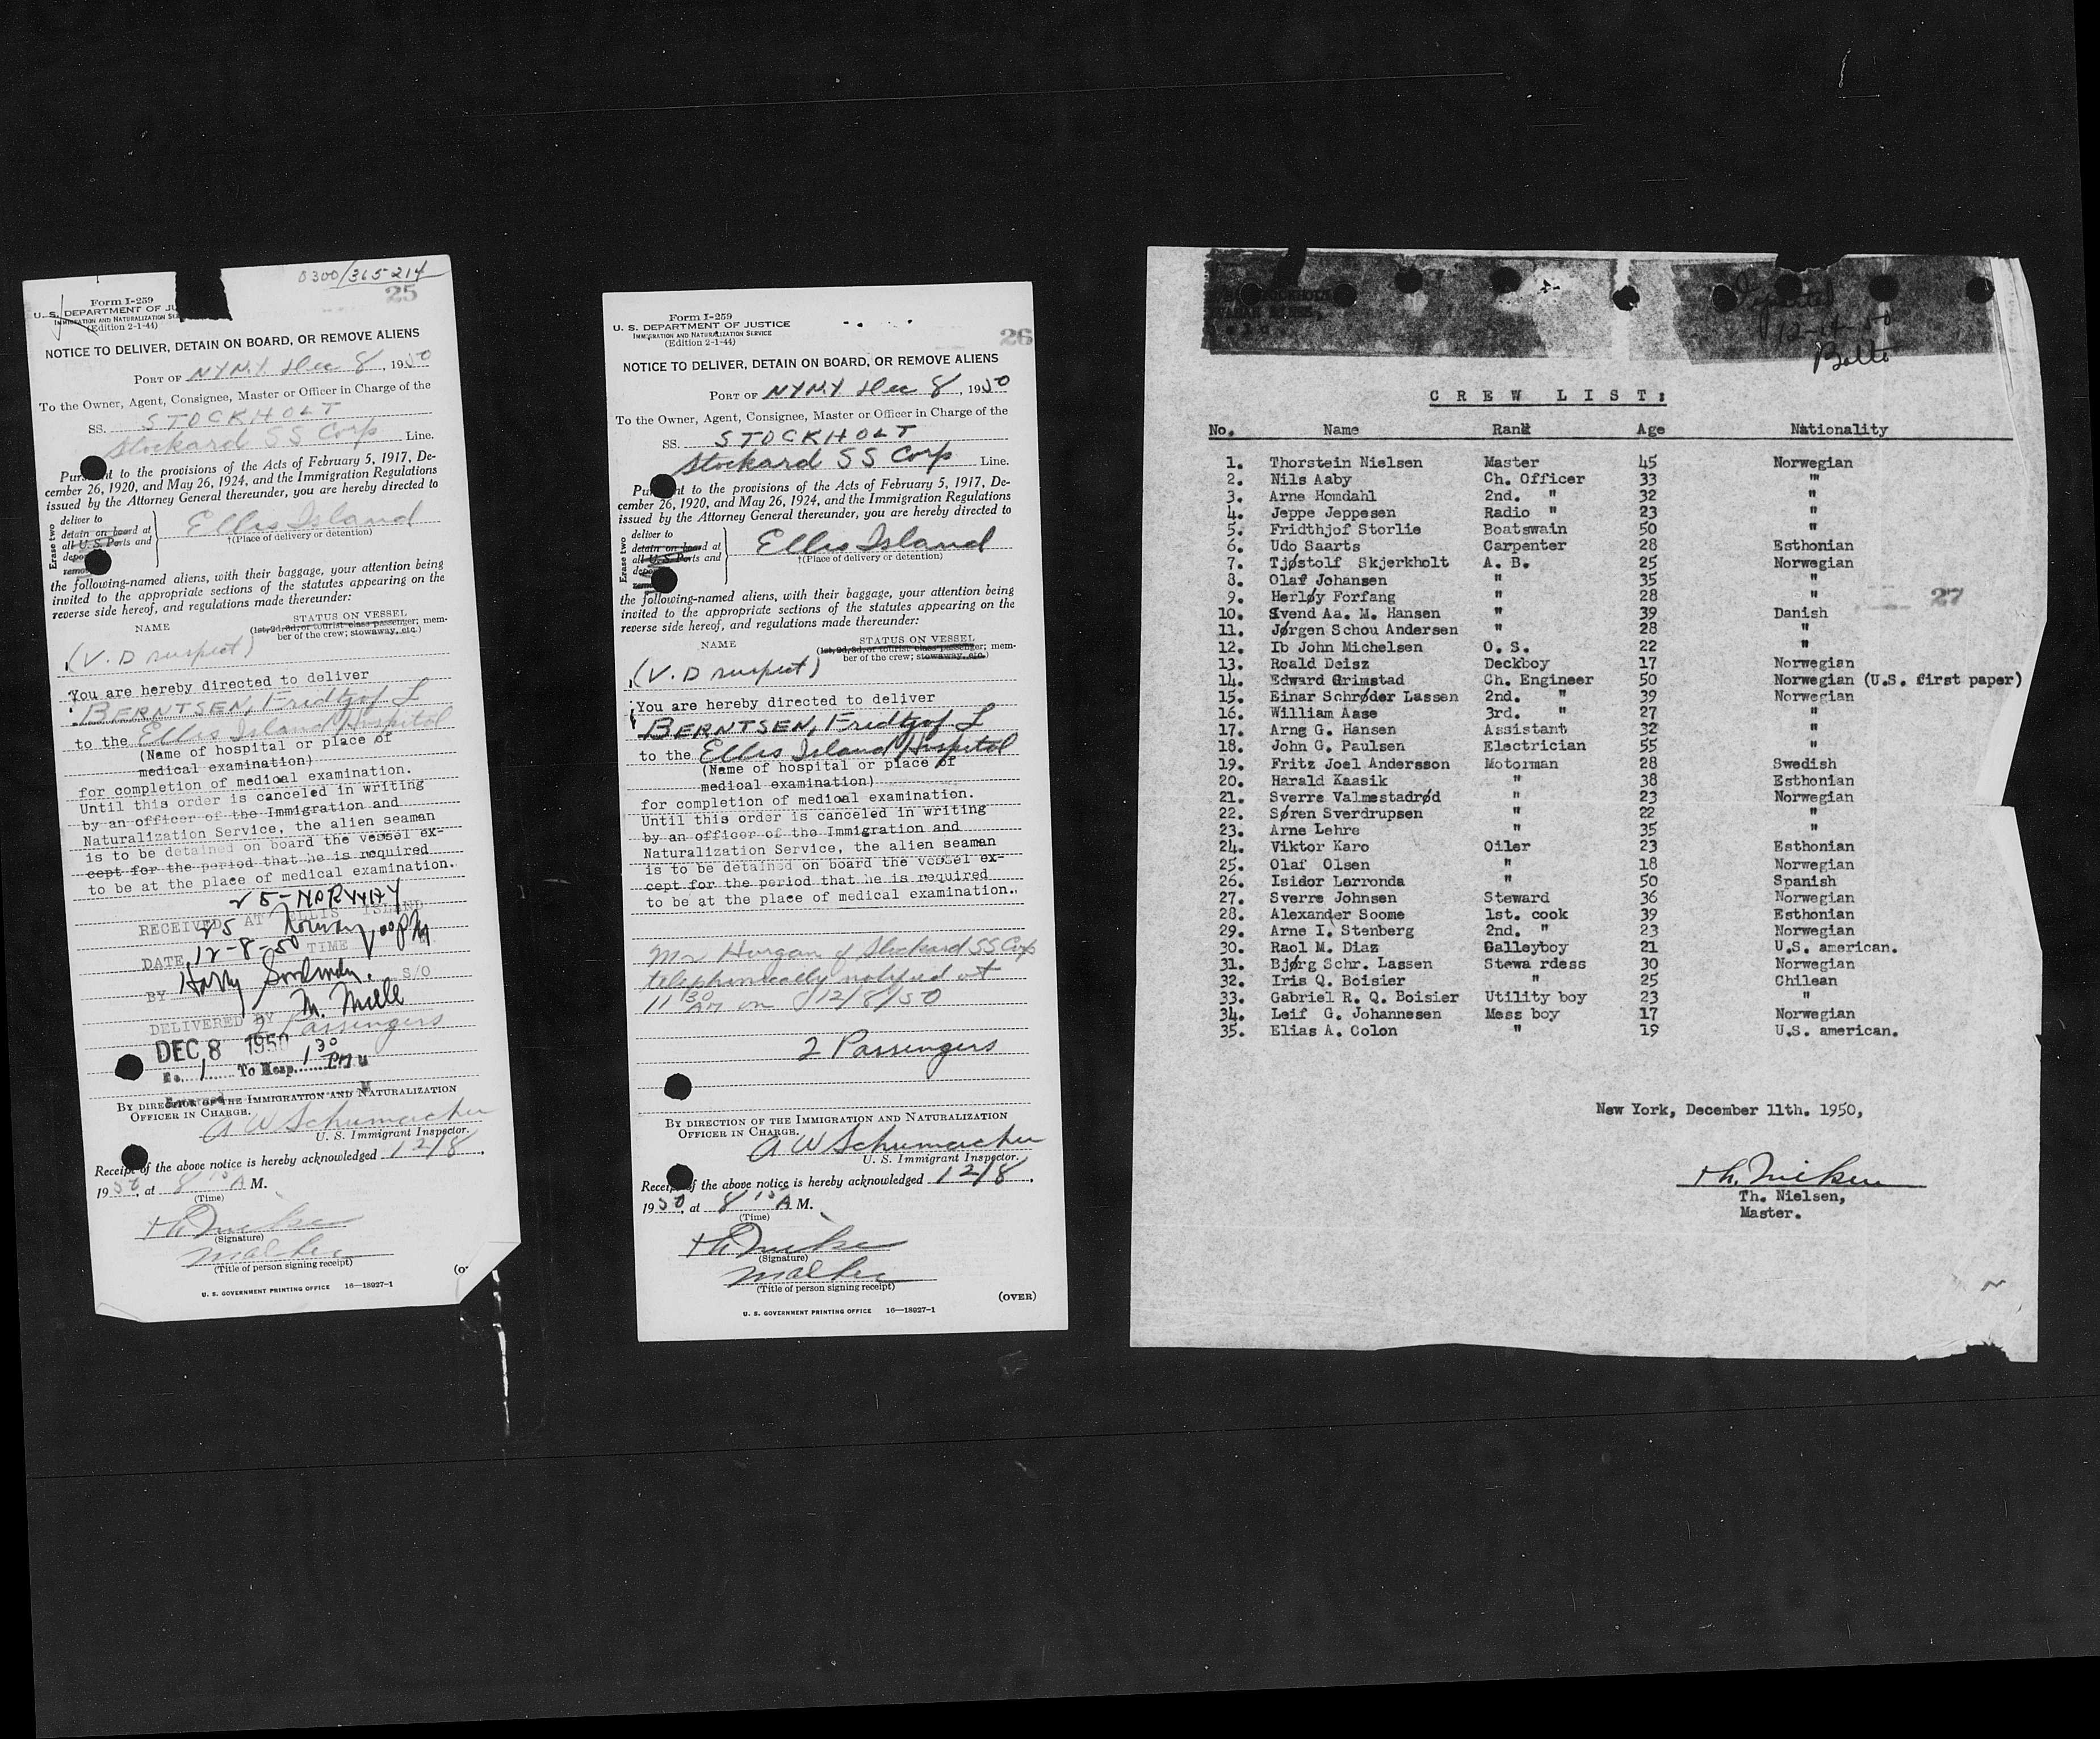 0300/365-214
25
Form I-259
U. S. DEPARTMENT OF JU
IMMIGRATION AND NATURALIZATION SE
(Edition 2-1-44)
NOTICE TO DELIVER, DETAIN ON BOARD, OR REMOVE ALIENS
PORT OF NYNY Dec 8, 1950
To the Owner, Agent, Consignee, Master or Officer in Charge of the
SS. STOCKHOLT
Stockard SS Corp Line.
Pursuant to the provisions of the Acts of February 5, 1917, De-
cember 26, 1920, and May 26, 1924, and the Immigration Regulations
issued by the Attorney General thereunder, you are hereby directed to
Erase two
deliver to
detain on board at
all U.S. Ports and
Ellis Island
†(Place of delivery or detention)
the following-named aliens, with their baggage, your attention being
invited to the appropriate sections of the statutes appearing on the
reverse side hereof, and regulations made thereunder:
NAME
STATUS ON VESSEL
(1st, 2d, 3d, or tourist class passenger; mem-
ber of the crew; stowaway, etc.)
(V.D suspect)
You are hereby directed to deliver
BERNTSEN, Fredtjof L
to the Ellis Island Hospital
(Name of hospital or place of
medical examination)
for completion of medical examination.
Until this order is canceled in writing
by an officer of the Immigration and
Naturalization Service, the alien seaman
is to be detained on board the vessel ex-
cept for the period that he is required
to be at the place of medical examination.
25-NORWAY
RECEIVED AT ELLIS ISLAND
25 Norway
DATE 12-8-50 TIME 1:00 PM
BY Harry S/O
M. Miele
DELIVERED BY
2 Passengers
DEC 8 1950
No. 1 To Hosp. 1 30 PM
BY DIRECTION OF THE IMMIGRATION AND NATURALIZATION
OFFICER IN CHARGE.
A W Schumacher
U. S. Immigrant Inspector.
Receipt of the above notice is hereby acknowledged 12/8,
1950, at 8 15 A M.
(Time)
Th Nielsen
(Signature)
Master
(Title of person signing receipt)
U. S. GOVERNMENT PRINTING OFFICE 16—18027-1
26
Form I-259
U. S. DEPARTMENT OF JUSTICE
IMMIGRATION AND NATURALIZATION SERVICE
(Edition 2-1-44)
NOTICE TO DELIVER, DETAIN ON BOARD, OR REMOVE ALIENS
PORT OF NYNY Dec 8, 1950
To the Owner, Agent, Consignee, Master or Officer in Charge of the
SS. STOCKHOLT
Stockard SS Corp Line.
Pursuant to the provisions of the Acts of February 5, 1917, De-
cember 26, 1920, and May 26, 1924, and the Immigration Regulations
issued by the Attorney General thereunder, you are hereby directed to
Erase two
deliver to
detain on board at
all U.S. Ports and
Ellis Island
†(Place of delivery or detention)
the following-named aliens, with their baggage, your attention being
invited to the appropriate sections of the statutes appearing on the
reverse side hereof, and regulations made thereunder:
NAME
STATUS ON VESSEL
(1st, 2d, 3d, or tourist class passenger; mem-
ber of the crew; stowaway, etc.)
(V.D suspect)
You are hereby directed to deliver
BERNTSEN, Fredtjof L
to the Ellis Island Hospital
(Name of hospital or place of
medical examination)
for completion of medical examination.
Until this order is canceled in writing
by an officer of the Immigration and
Naturalization Service, the alien seaman
is to be detained on board the vessel ex-
cept for the period that he is required
to be at the place of medical examination.
Mr Horgan of Stockard SS Corp
telephonically notified at
11 30 AM on 12/8/50
2 Passengers
BY DIRECTION OF THE IMMIGRATION AND NATURALIZATION
OFFICER IN CHARGE.
A W Schumacher
U. S. Immigrant Inspector.
Receipt of the above notice is hereby acknowledged 12/8,
1950, at 8 15 A M.
(Time)
Th Nielsen
(Signature)
Master
(Title of person signing receipt)
(OVER)
U. S. GOVERNMENT PRINTING OFFICE 16—18027-1
Departed
12-14-50
Balto
CREW LIST:
No. Name Rank Age Nationality
1. Thorstein Nielsen Master 45 Norwegian
2. Nils Aaby Ch. Officer 33 "
3. Arne Homdahl 2nd. " 32 "
4. Jeppe Jeppesen Radio " 23 "
5. Fridthjof Storlie Boatswain 50 "
6. Udo Saarts Carpenter 28 Esthonian
7. Tjøstolf Skjerkholt A. B. 25 Norwegian
8. Olaf Johansen " 35 "
9. Herløy Forfang " 28 "
27
10. Svend Aa. M. Hansen " 39 Danish
11. Jørgen Schou Andersen " 28 "
12. Ib John Michelsen O. S. 22 "
13. Roald Deisz Deckboy 17 Norwegian
14. Edward Grimstad Ch. Engineer 50 Norwegian (U.S. first paper)
15. Einar Schrøder Lassen 2nd. " 39 Norwegian
16. William Aase 3rd. " 27 "
17. Arng G. Hansen Assistant 32 "
18. John G. Paulsen Electrician 55 "
19. Fritz Joel Andersson Motorman 28 Swedish
20. Harald Kaasik " 38 Esthonian
21. Sverre Valmestadrød " 23 Norwegian
22. Søren Sverdrupsen " 22 "
23. Arne Lehre " 35 "
24. Viktor Karo Oiler 23 Esthonian
25. Olaf Olsen " 18 Norwegian
26. Isidor Larronda " 50 Spanish
27. Sverre Johnsen Steward 36 Norwegian
28. Alexander Soome 1st. cook 39 Esthonian
29. Arne I. Stenberg 2nd. " 23 Norwegian
30. Raol M. Diaz Galleyboy 21 U.S. american.
31. Bjørg Schr. Lassen Stewa rdess 30 Norwegian
32. Iris Q. Boisier " 25 Chilean
33. Gabriel R. Q. Boisier Utility boy 23 "
34. Leif G. Johannesen Mess boy 17 Norwegian
35. Elias A. Colon " 19 U.S. american.
New York, December 11th. 1950,
Th. Nielsen
Th. Nielsen,
Master.